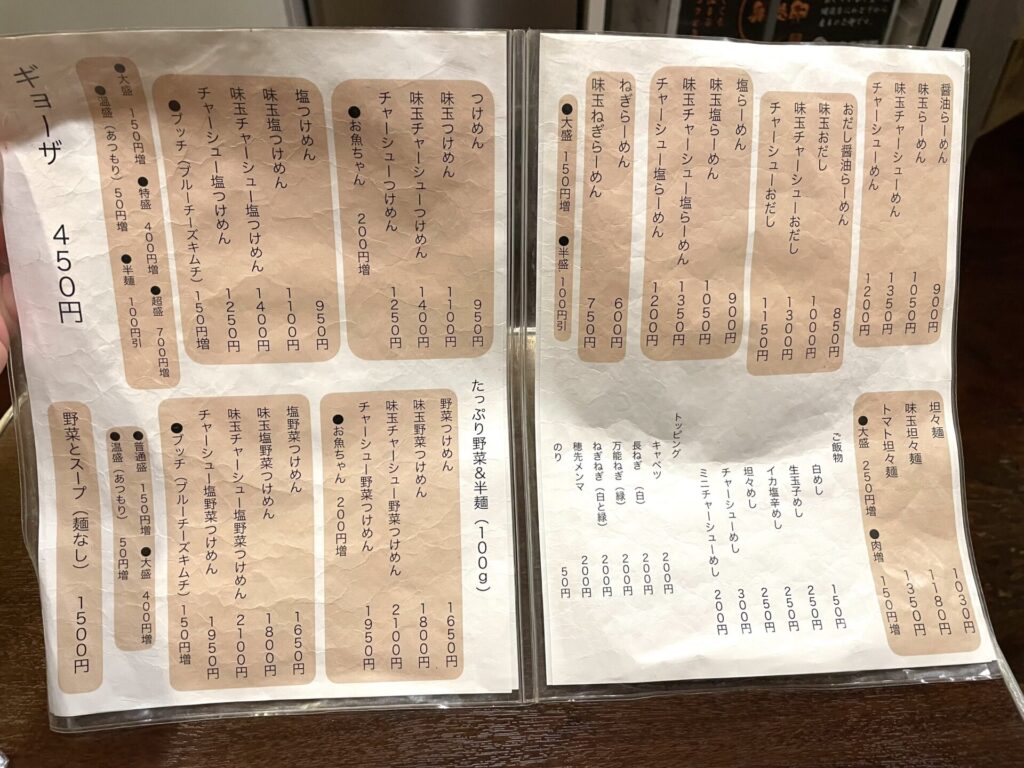 醤油らーめん 900円
味玉らーめん 1050円
味玉チャーシューめん 1350円
チャーシューめん 1200円
おだし醤油らーめん 850円
味玉おだし 1000円
味玉チャーシューおだし 1300円
チャーシューおだし 1150円
塩らーめん 900円
味玉塩らーめん 1050円
味玉チャーシュー塩らーめん 1350円
チャーシュー塩らーめん 1200円
ねぎらーめん 600円
味玉ねぎらーめん 750円
●大盛 150円増 ●半盛 100円引
坦々麺 1030円
味玉坦々麺 1180円
トマト坦々麺 1350円
●大盛 250円増 ●肉増 150円増
ご飯物
白めし 150円
生玉子めし 250円
イカ塩辛めし 250円
坦々めし 250円
チャーシューめし 300円
ミニチャーシューめし 200円
トッピング
キャベツ 200円
長ねぎ（白） 200円
万能ねぎ（緑） 200円
ねぎねぎ（白と緑） 200円
穂先メンマ 200円
のり 50円
つけめん 950円
味玉つけめん 1100円
味玉チャーシューつけめん 1400円
チャーシューつけめん 1250円
●お魚ちゃん 200円増
塩つけめん 950円
味玉塩つけめん 1100円
味玉チャーシュー塩つけめん 1400円
チャーシュー塩つけめん 1250円
●ブッチ（ブルーチーズキムチ） 150円増
●大盛 150円増 ●特盛 400円増 ●超盛 700円増
●温盛（あつもり） 50円増 ●半麺 100円引
ギョーザ 450円
たっぷり野菜&半麺（100g）
野菜つけめん 1650円
味玉野菜つけめん 1800円
味玉チャーシュー野菜つけめん 2100円
チャーシュー野菜つけめん 1950円
●お魚ちゃん 200円増
塩野菜つけめん 1650円
味玉塩野菜つけめん 1800円
味玉チャーシュー塩野菜つけめん 2100円
チャーシュー塩野菜つけめん 1950円
●ブッチ（ブルーチーズキムチ） 150円増
●普通盛 150円増 ●大盛 400円増
●温盛（あつもり） 50円増
野菜とスープ（麺なし） 1500円